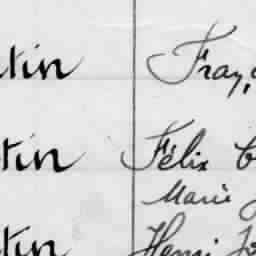 tin Fran
tin Félix
Marie
tin Henri